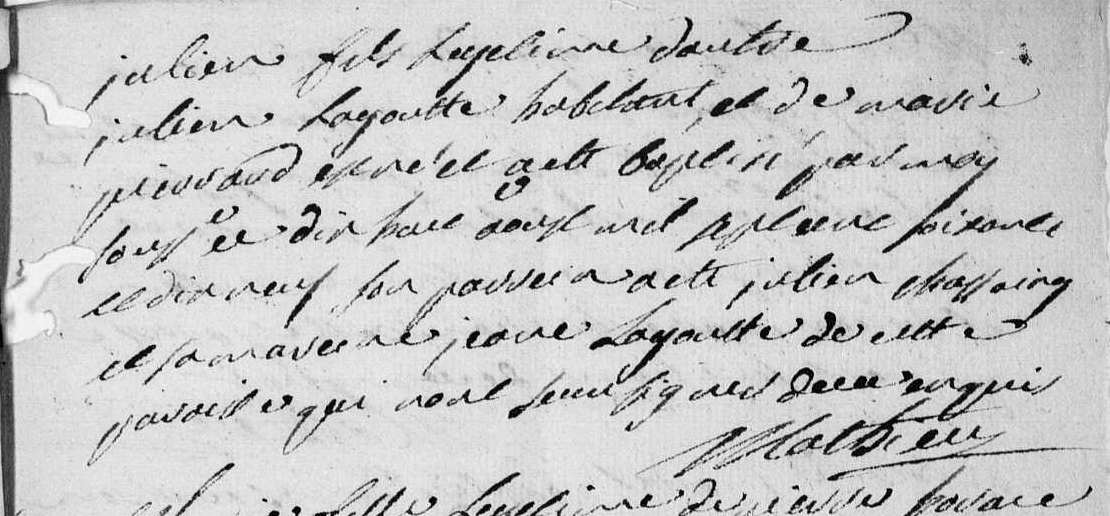 julien fils Legitime dautre
julien Lagoutte habitant et de marie
pierraud est né et a ette baptisé par moy
souss né dix huit aoust mil sept cent soixante
et dix neuf son parrein a ette julien chassaing
et sa mareine jeane Lagoutte de cette
paroisse qui nont sceu signer de ce enquis
Mathieu
fille Legitime de pierre